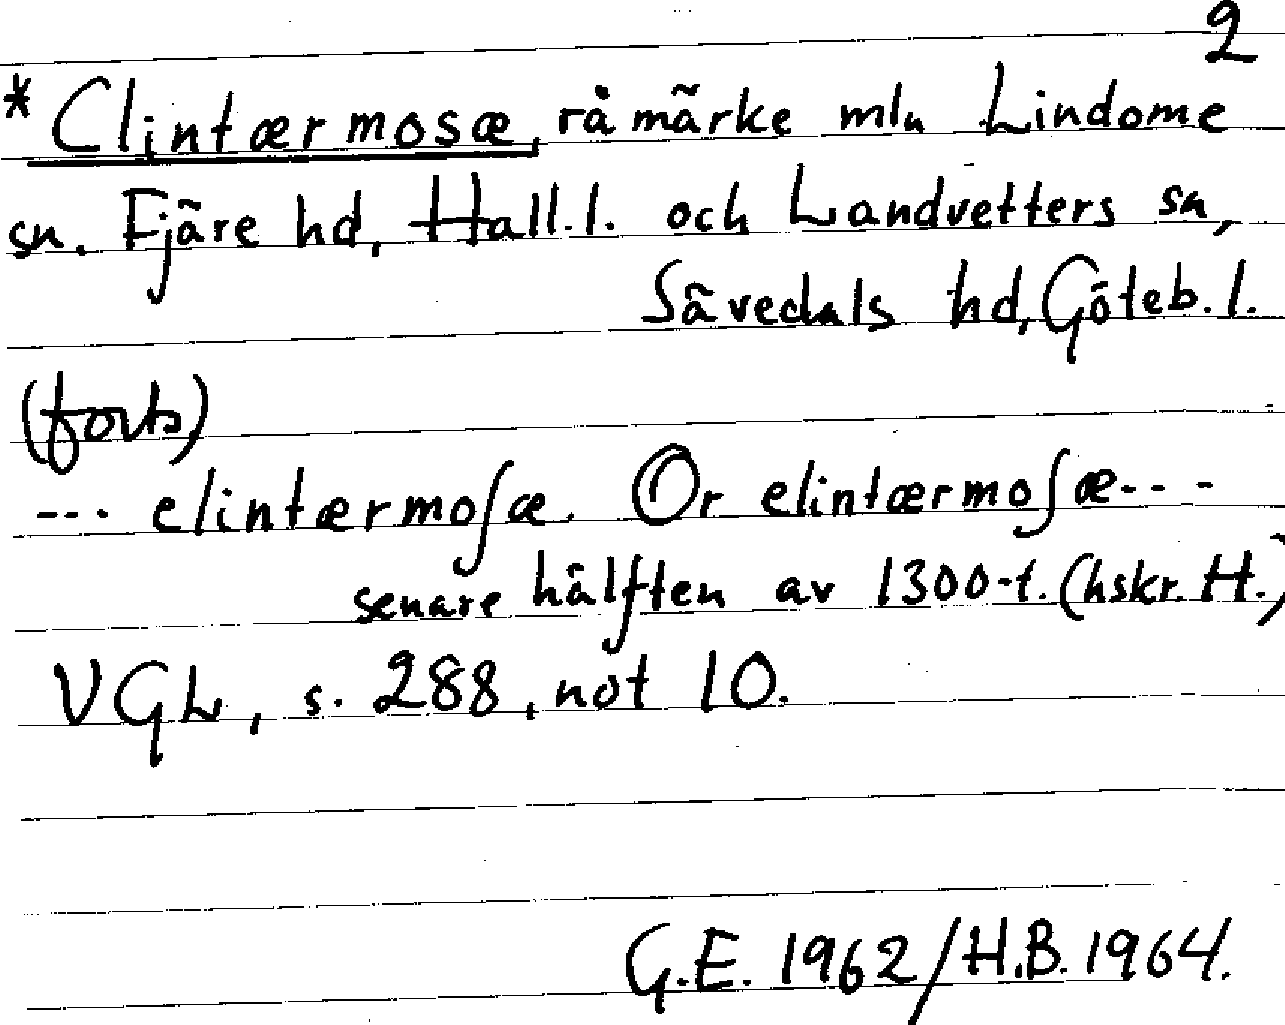 2
*Clintær mosæ, råmärke mln Lindome
sn. Fjäre hd, Hall.l. och Landvetters sn,
Sävedals hd, Göteb.l.
(forts)
--- elintærmoſæ. Or elintærmoſæ---
senare hälften av 1300-t. (hskr. H.)
VGL, s. 288, not 10.
G.E. 1962/H.B. 1964.